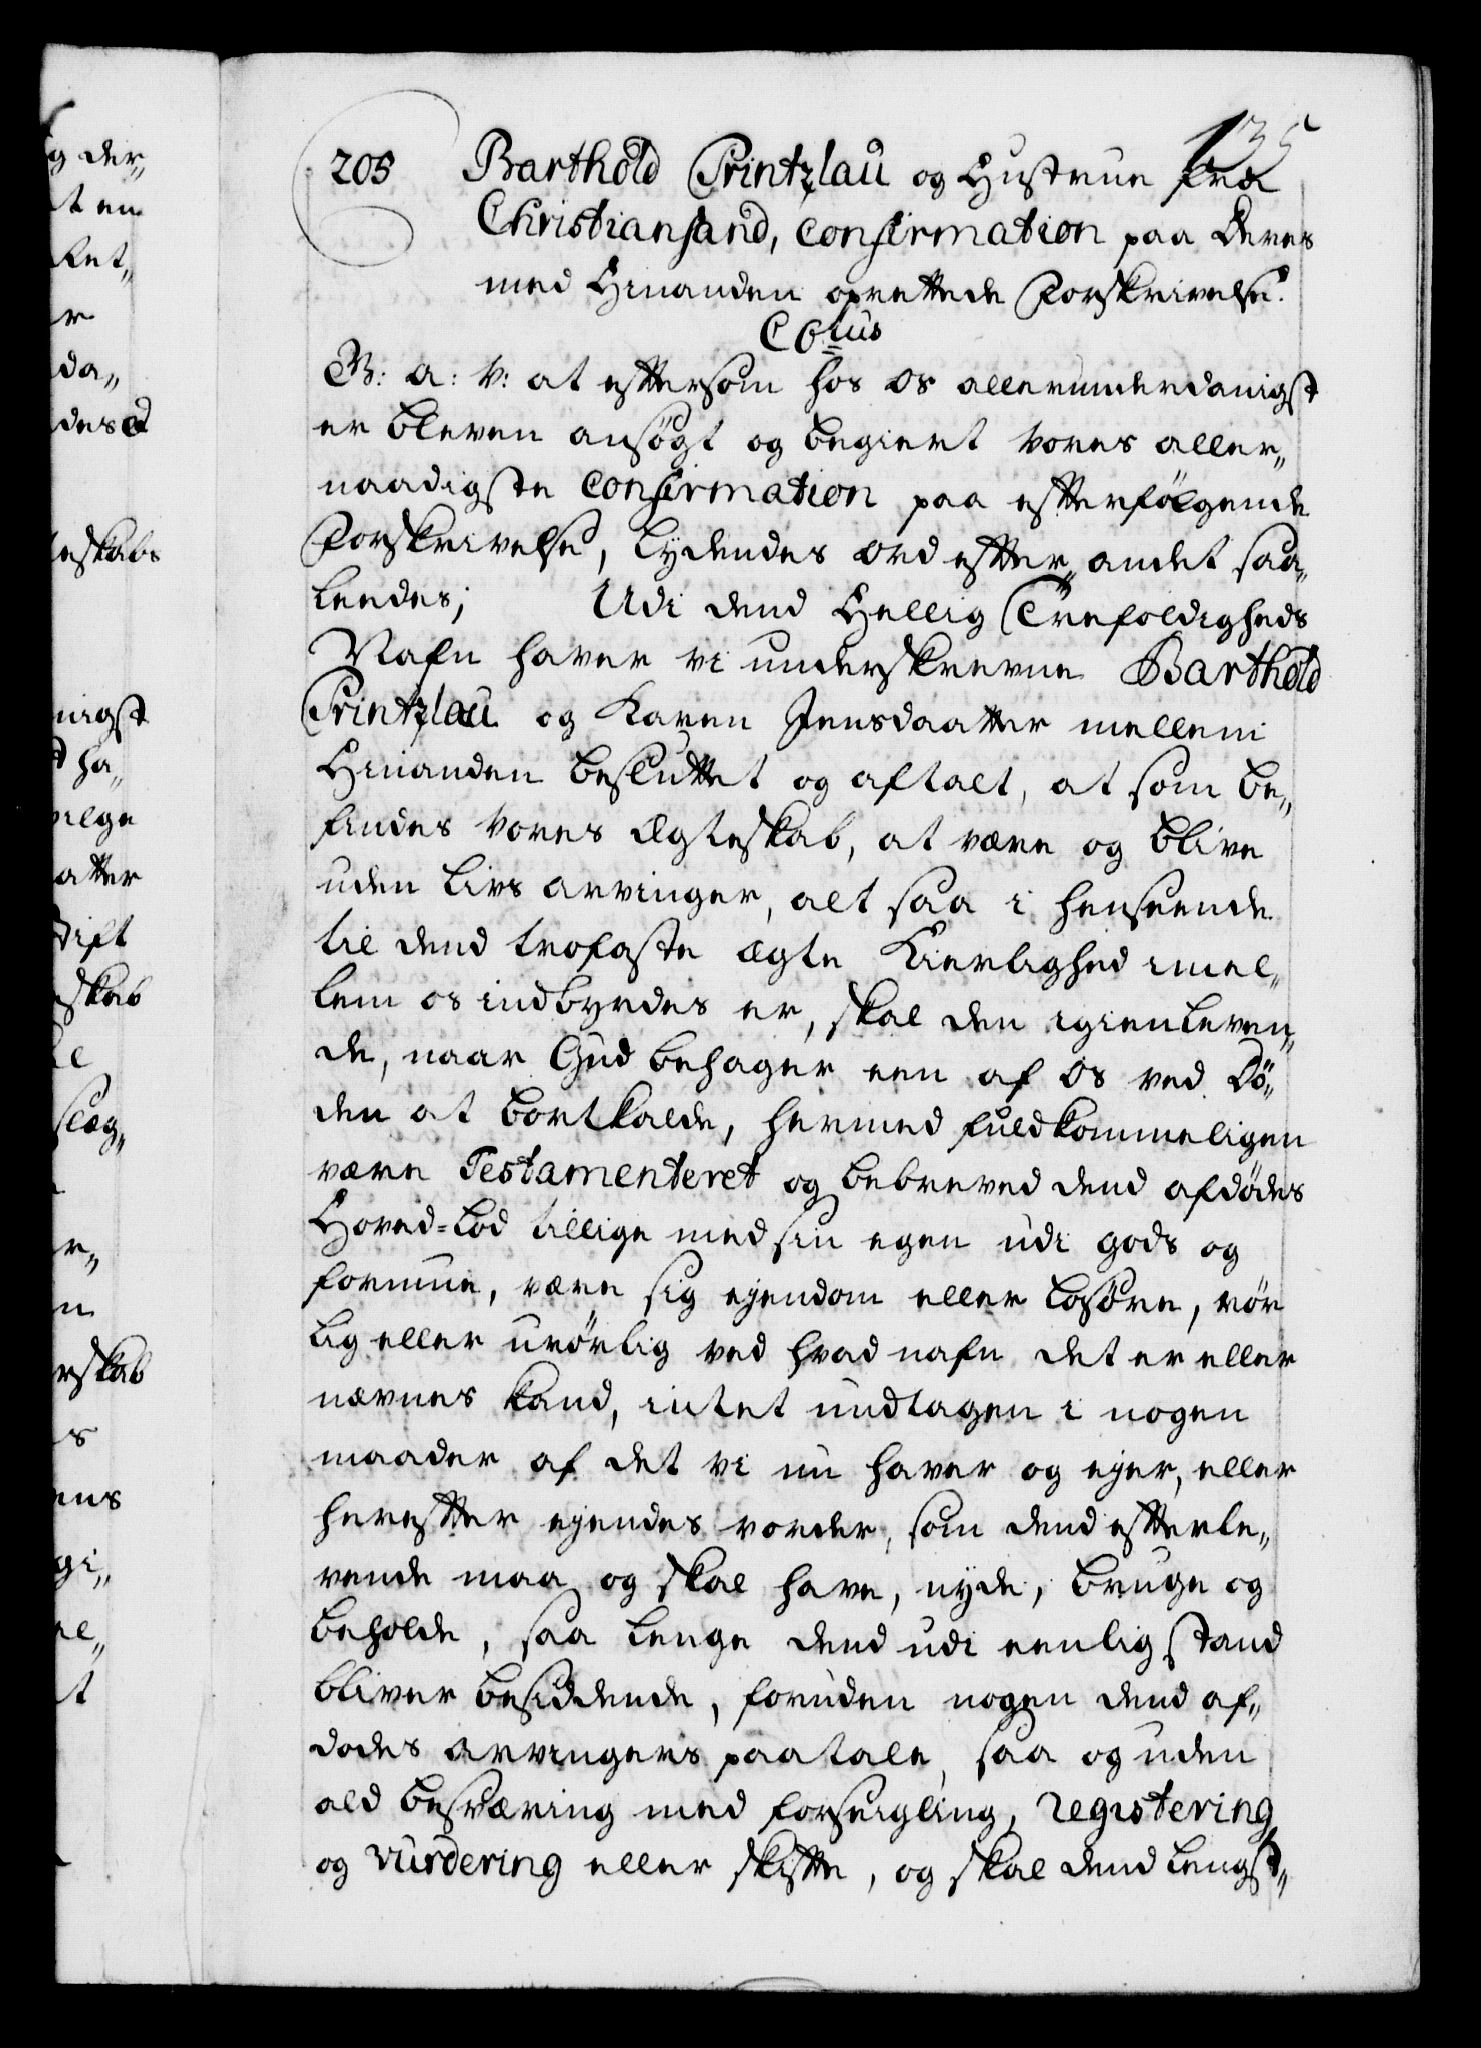 135
205 Barthold Printzlau og Hustrue fra
Christiansand, Confirmation paa Deres
med Hinanden oprettede Forskrivelse.
C 6tus
G: a: V: at eftersom hos os allerunderdanigst
er bleven ansøgt og begiert vores aller„
naadigste Confirmation paa efterfølgende
Forskrivelse, lydendes ord efter„ andet saa„
leedes; Udi dend Hellig Trefoldigheds
Nafn haver vi underskrevne Barthold
Printzlau og Karen Jensdaatter mellem
Hinanden besluttet og aftalt, at som be„
findes vores Ægteskab, at være og blive
uden livs arvinger, alt saa i henseende
til dend trofaste ægte Kierlighed imel„
lem os indbyrdes er, skal den igienleven„
de, naar Gud behager een af os ved Dö„
den at bortkalde, hermed fuldkommeligen
være Testamenteret og bebreved dend afdödes
Hoved-lod tillige med sin egen udi gods og
formue, være sig ejendom eller losöre, rör
lig eller urörlig ved hvad nafn det er eller
nævnes kand, intet undtagen i nogen
maader af det vi nu haver og ejer, eller
herefter ejendes vorder, som dend efterle„
vende maa og skal have, nyde, bruge og
beholde, saa lenge dend udi eenlig stand
bliver besiddende, foruden nogen dend af„
dodes arvingers paatale, saa og uden
ald besværing med forseigling, registering
og vurdering eller skifte, og skal dend lengst„